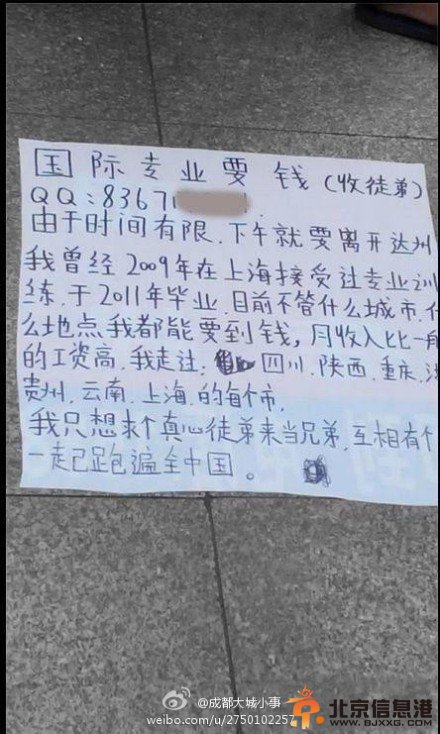 国际专业要钱(收徒弟)
QQ:8367
由于时间有限.下午就要离开达州
我曾经2009年在上海接受过专业训
练.于2011年毕业.目前不管什么城市.什
么地点我都能要到钱,月收入比一般
的工资高.我走过:四川.陕西.重庆.
贵州.云南.上海.的每个市,
我只想求个真心徒弟来当兄弟.互相有个
一走已跑遍全中国。
@成都大城小事
weibo.com/u/2750102257
北京信息港
WWW.BJXXG.COM